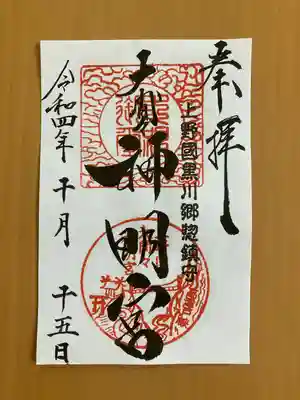 奉拝
上野國黒川郷惣鎮守
大賀神明宮
令和四年 十月 十五日